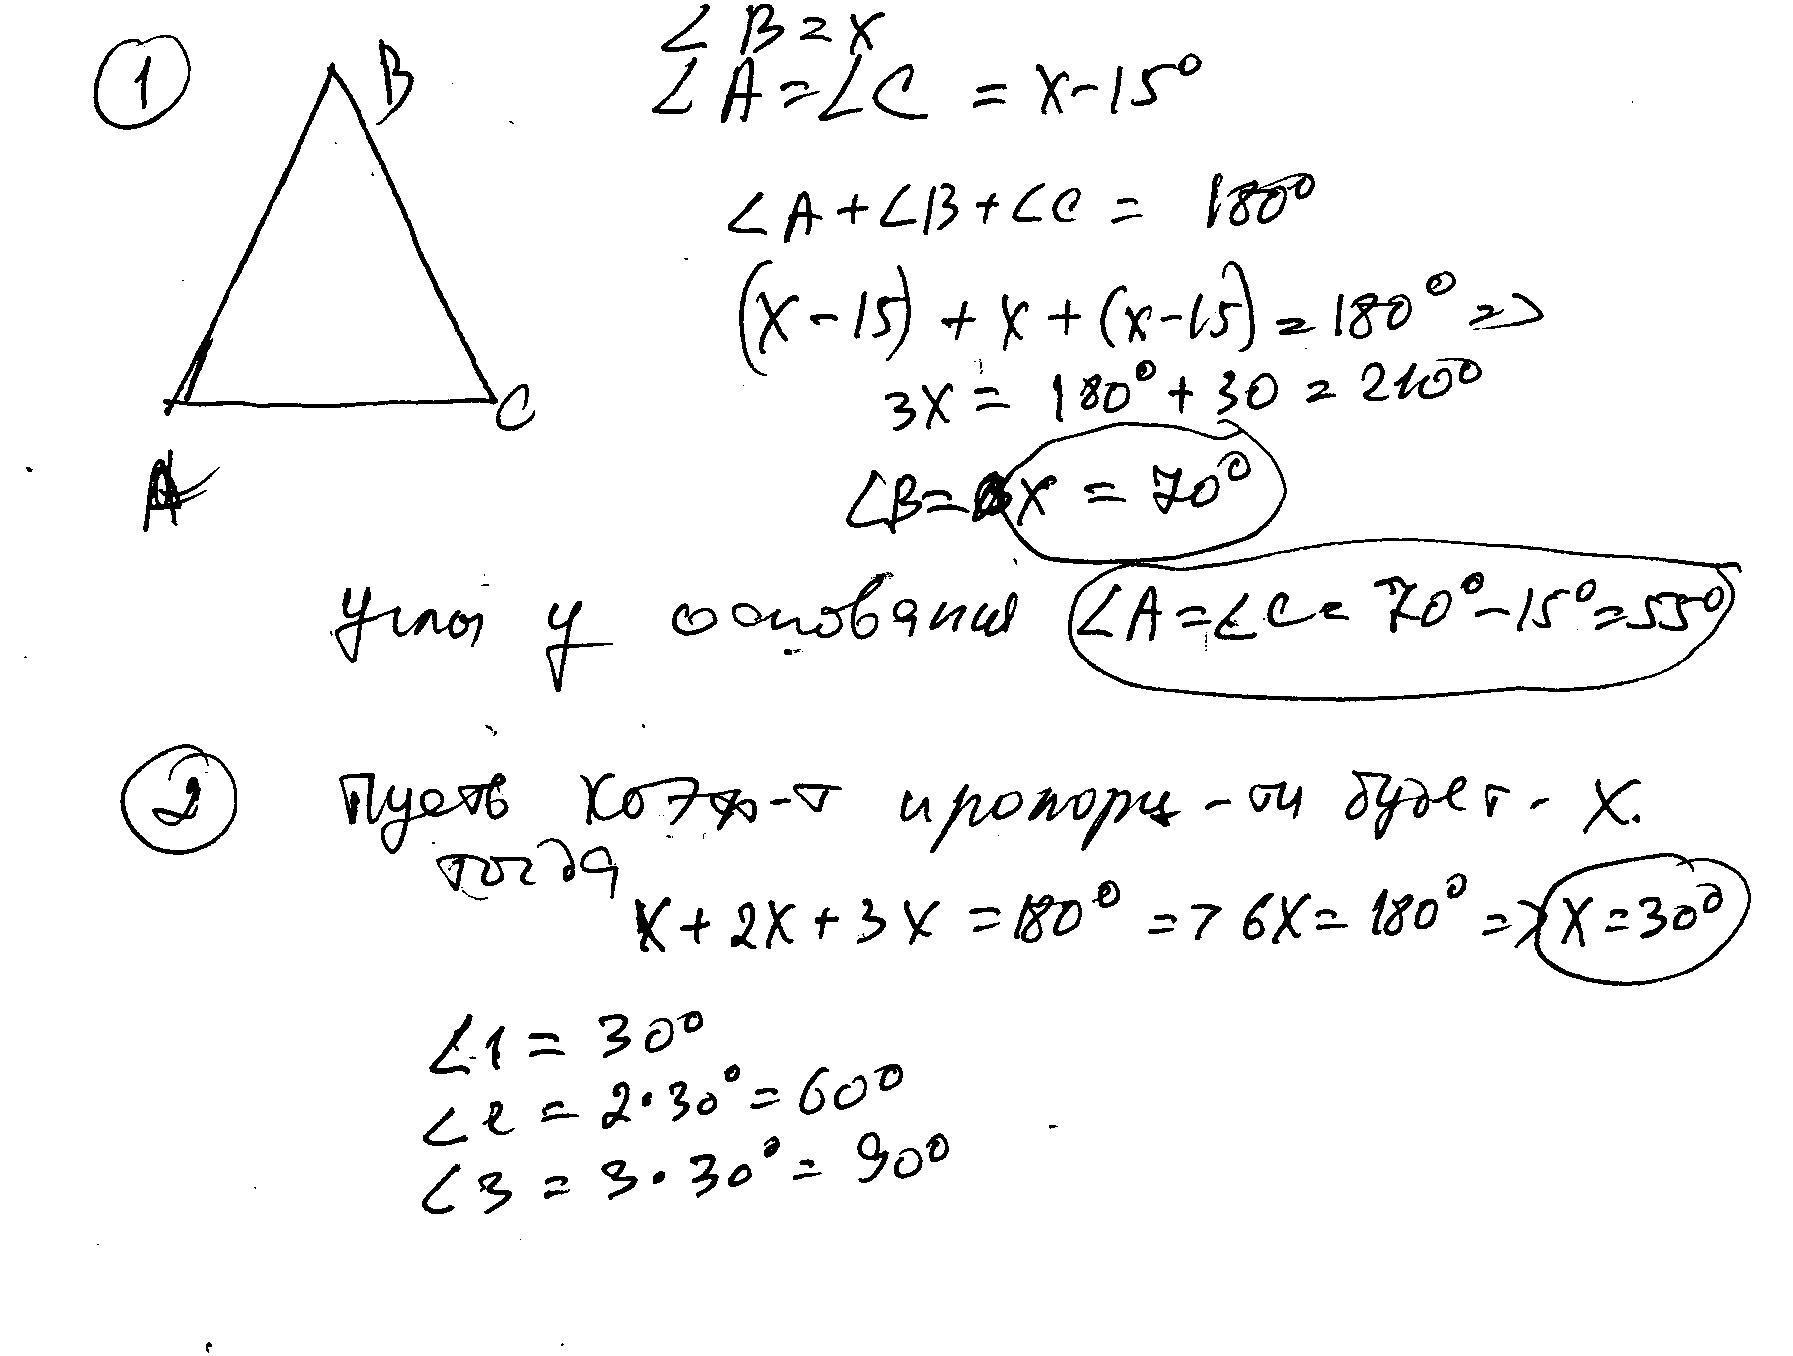 1
B
A
C
∠B = x
∠A = ∠C = x-15°
∠A + ∠B + ∠C = 180°
(x-15) + x + (x-15) = 180° =>
3x = 180° + 30 = 210°
∠B = x = 70°
углы у основания ∠A = ∠C = 70° - 15° = 55°
2
Пусть коэф-т пропорц-ти будет - x.
тогда
x + 2x + 3x = 180° => 6x = 180° => x = 30°
∠1 = 30°
∠2 = 2·30° = 60°
∠3 = 3·30° = 90°